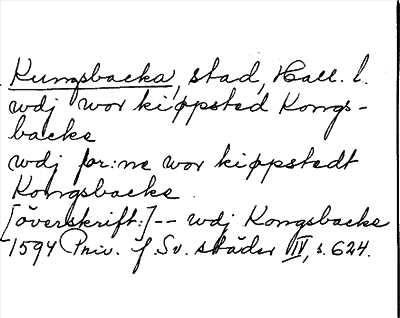 Kungsbacka, stad, Hall. l.
wdj wor kiøpsted Kongs-
backe
wdj for:ne wor kiøpstedt
Kongsbacke.
[överskrift:] -- wdj Kongsbacke
1594 Priv. f. Sv. städer IV, s. 624.